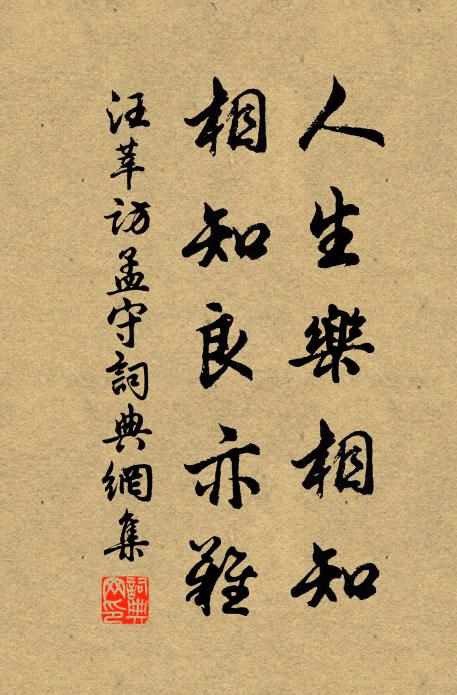 人生樂相知
相知良亦難
汪莘訪孟守詞典網集
詞典網印